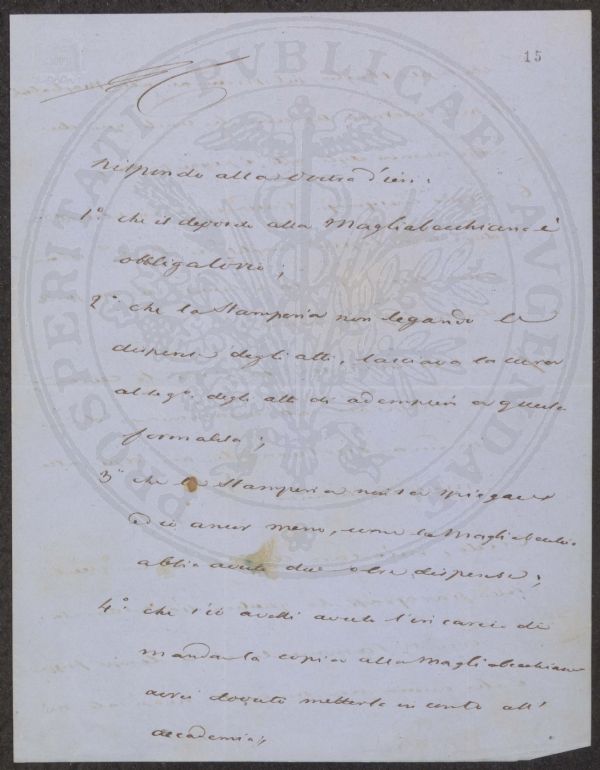 15
PROSPERITATI PVBLICAE AVGENDAE
Rispondo alla vostra d'ieri.
1.° che il deposito alla Magliabecchiana è
obbligatorio;
2.° che la Stamperia non legando le
dispense degli atti, lasciava la cura
al Seg.° degli atti di adempiere a questa
formalità;
3.° che la Stamperia non sa spiegare
ed io ancor meno, come la Magliabech.
abbia avute due altre dispense;
4.° che s'io avessi avuto l'incarico di
mandar la copia alla Magliabecchiana
avrei dovuto metterla in conto all'
accademia;